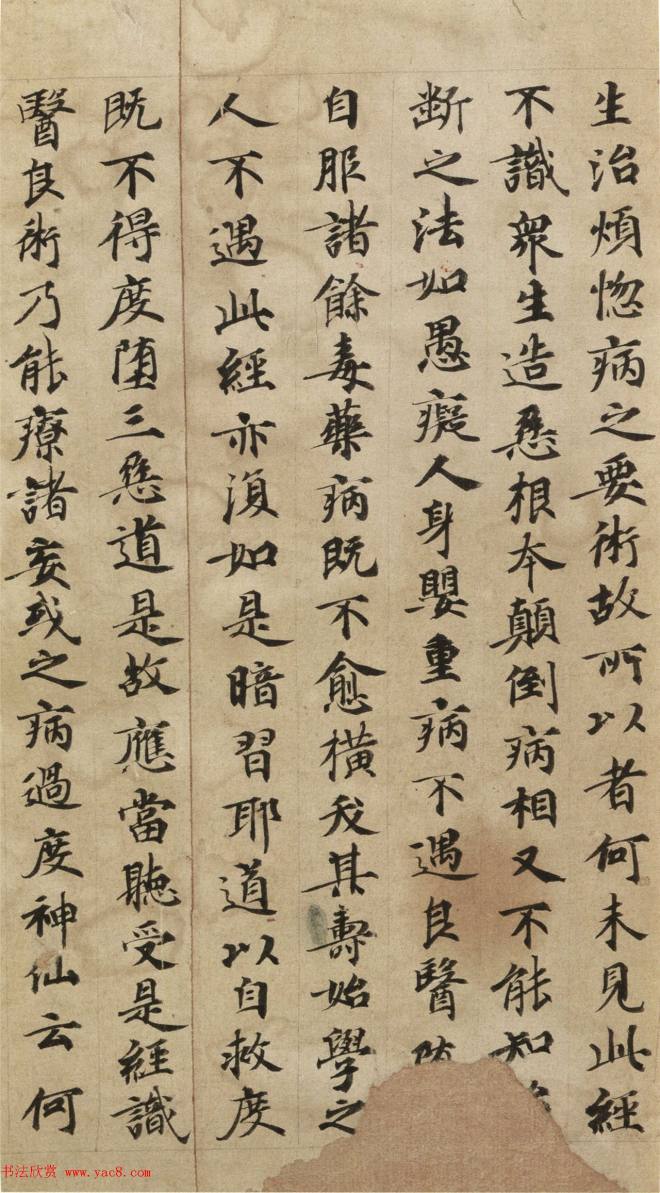 生治煩惚病之要術故所以者何未見此經
不識衆生造惡根本顛倒病相又不能知
断之法如愚癡人身嬰重病不遇良醫
自服諸餘毒藥病既不愈橫夭其壽始學之
人不遇此經亦復如是暗習耶道以自救度
既不得度堕三惡道是故應當聽受是經識
醫良術乃能療諸妄或之病過度神仙云何
书法欣赏 www.yac8.com